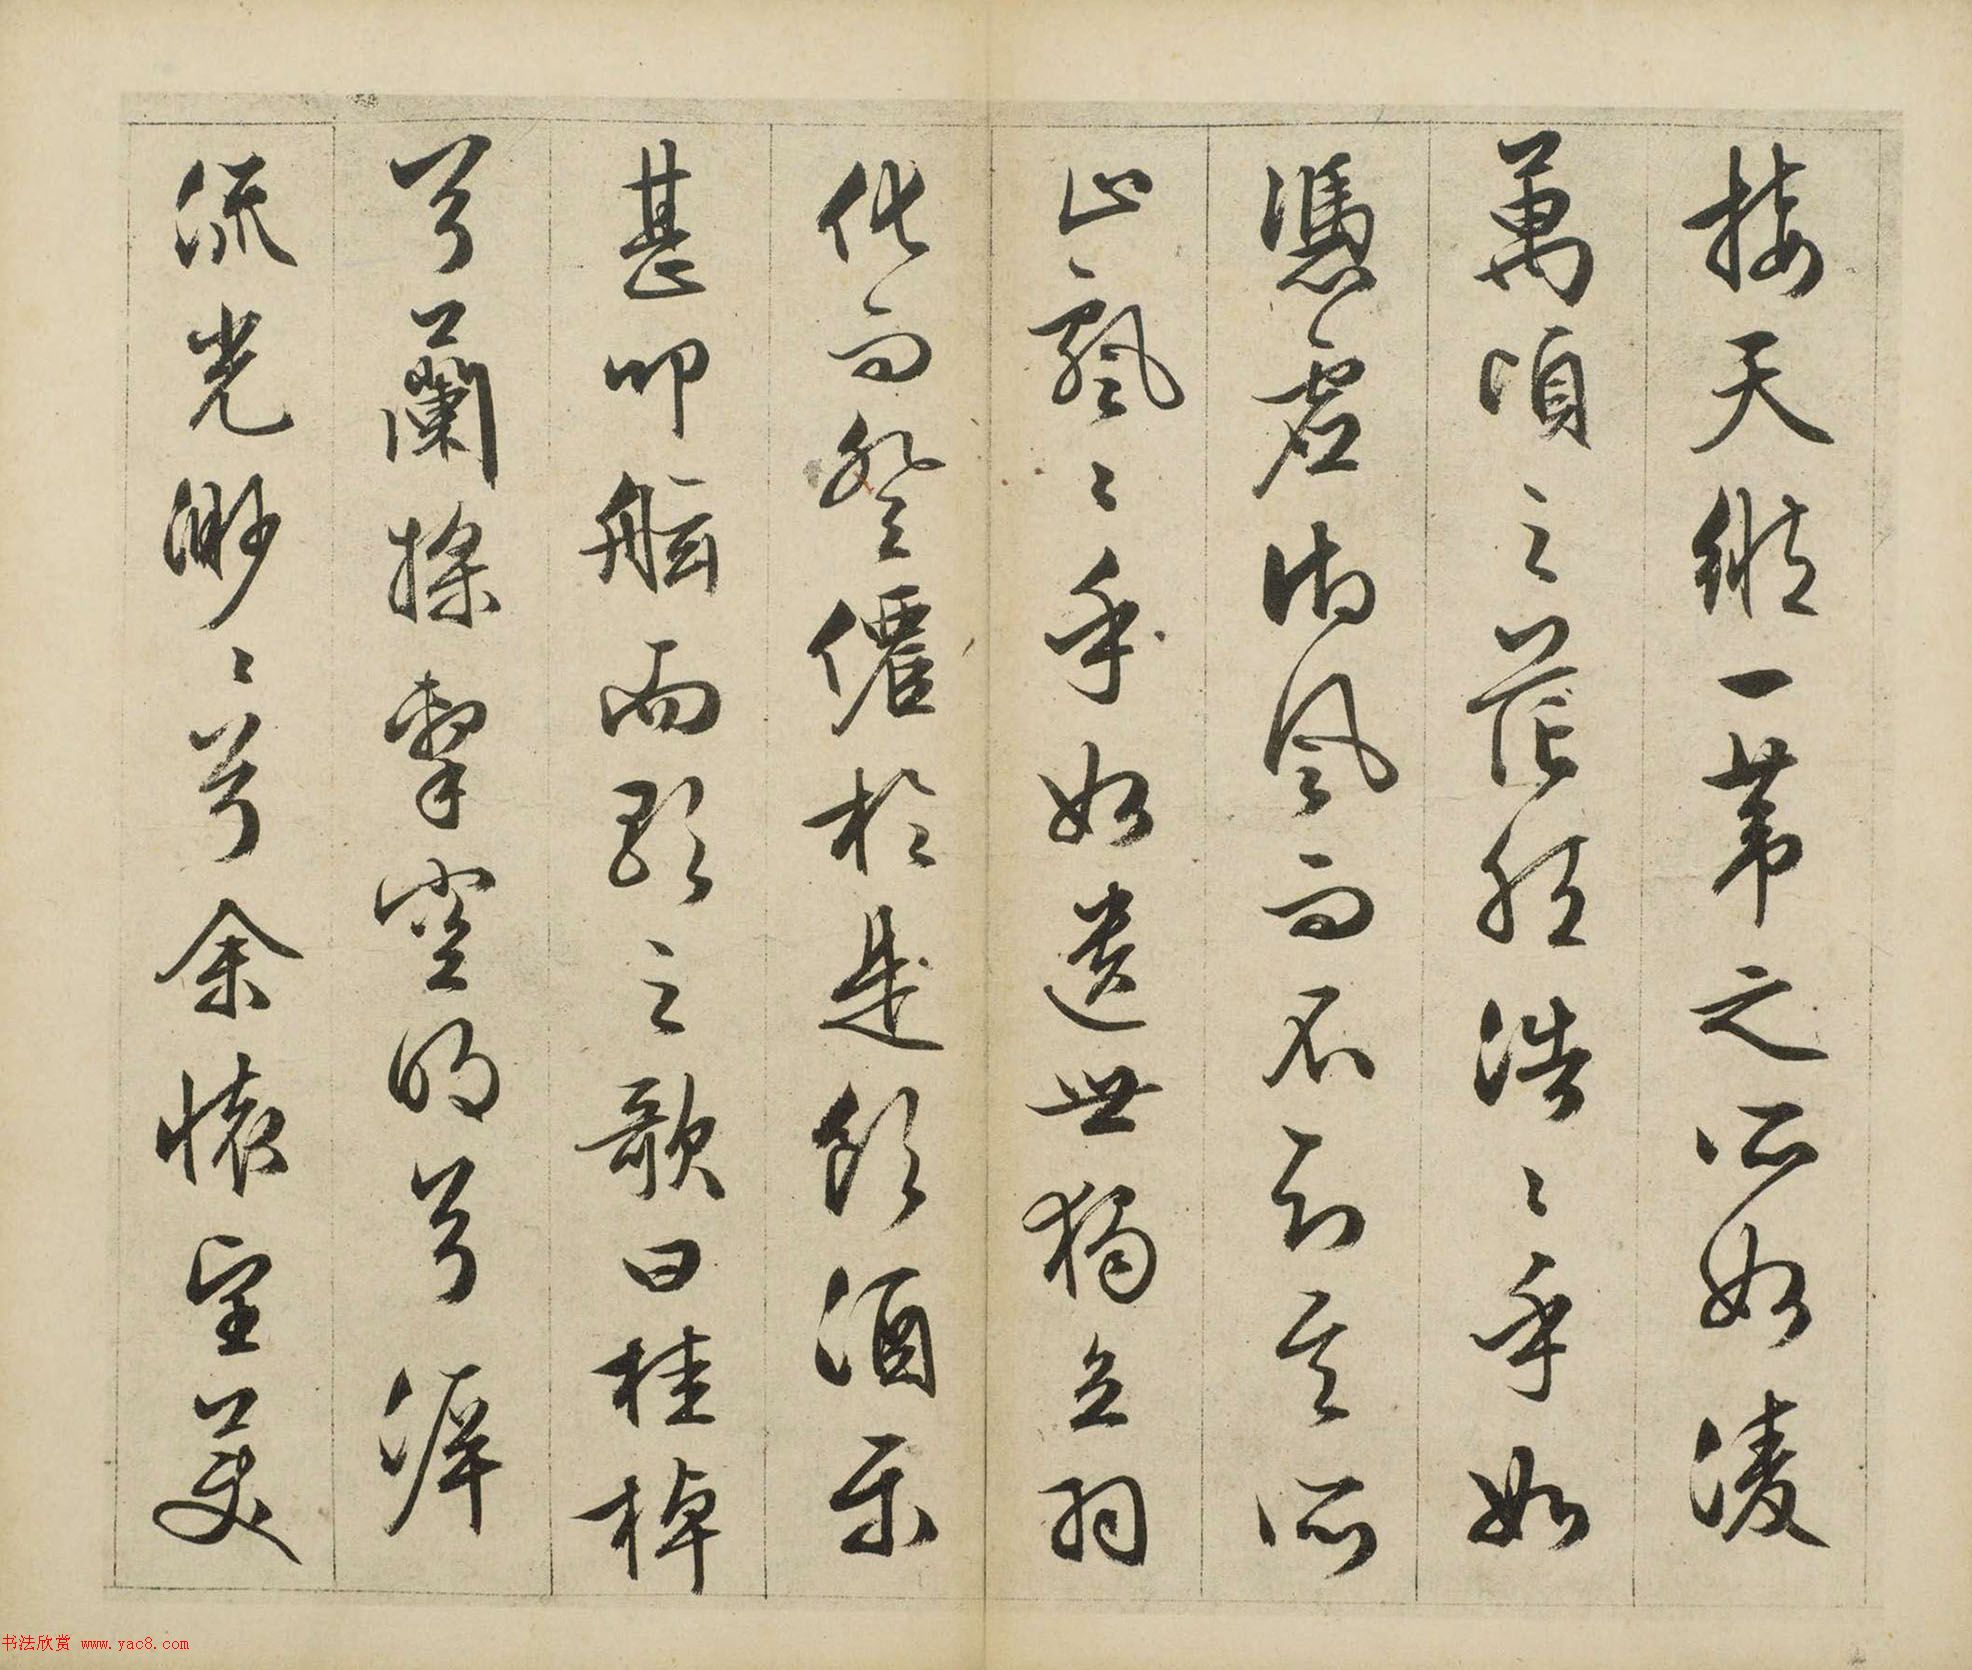 接天縱一葦之所如凌
萬頃之茫然浩〻乎如
憑虛御風而不知其所
止飄〻乎如遺世獨立羽
化而登僊於是飲酒樂
甚叩舷而歌之歌曰桂棹
兮蘭槳擊空明兮泝
流光渺〻兮余懷望美
书法欣赏 www.yac8.com